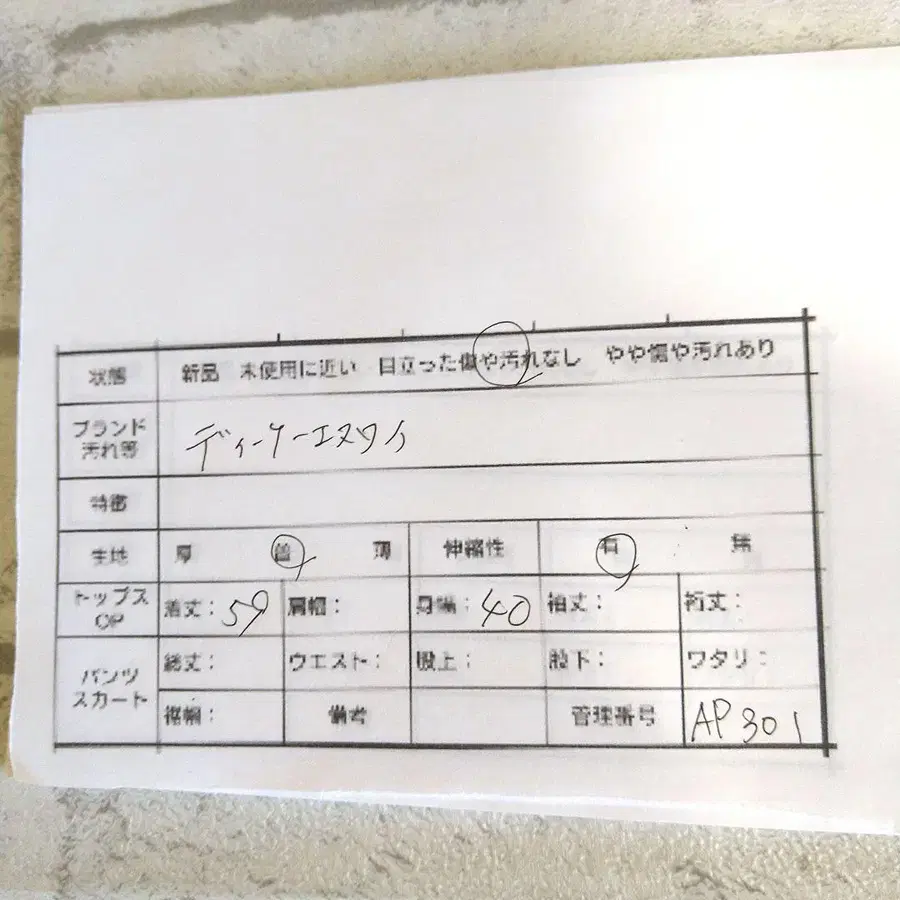 状態 新品 未使用に近い 目立った傷や汚れなし やや傷や汚れあり
ブランド
汚れ等
ディーケーエヌワイ
特徴
生地 厚 普 薄 伸縮性 有 無
トップス
OP
着丈：59 肩幅： 身幅：40 袖丈： 裄丈：
パンツ
スカート
総丈： ウエスト： 股上： 股下： ワタリ：
裾幅： 備考 管理番号 AP301